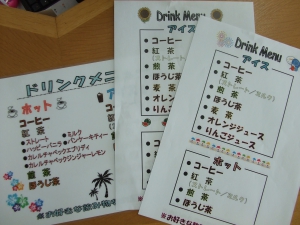 ドリンクメニ
ホット
コーヒー
紅茶
●ストレート ●ミルク
●ハッピーバニラ ●パンケーキティー
●カレルチャペックエブリディ
●カレルチャペックジンジャーレモン
煎茶
ほうじ茶
Drink Menu
アイス
●コーヒー
●紅茶
(ストレート/ミルク)
●煎茶
●ほうじ茶
●麦茶
●オレンジ
●りんごジ
ホット
●コーヒー
●紅茶
●煎茶
●ほう
Drink Menu
アイス
●コーヒー
●紅茶
(ストレート/ミルク)
●煎茶
●ほうじ茶
●麦茶
●オレンジジュース
●りんごジュース
ホット
●コーヒー
●紅茶
(ストレート/ミルク)
●煎茶
●ほうじ茶
※お好きな